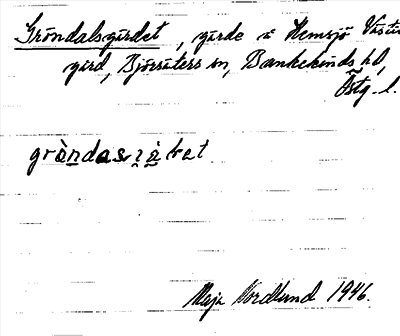 Gröndalsgärdet, gärde i Hemsjö Väster
gård, Björsäters sn, Bankekinds hd,
Östg. l.
Maja Nordlund 1946.